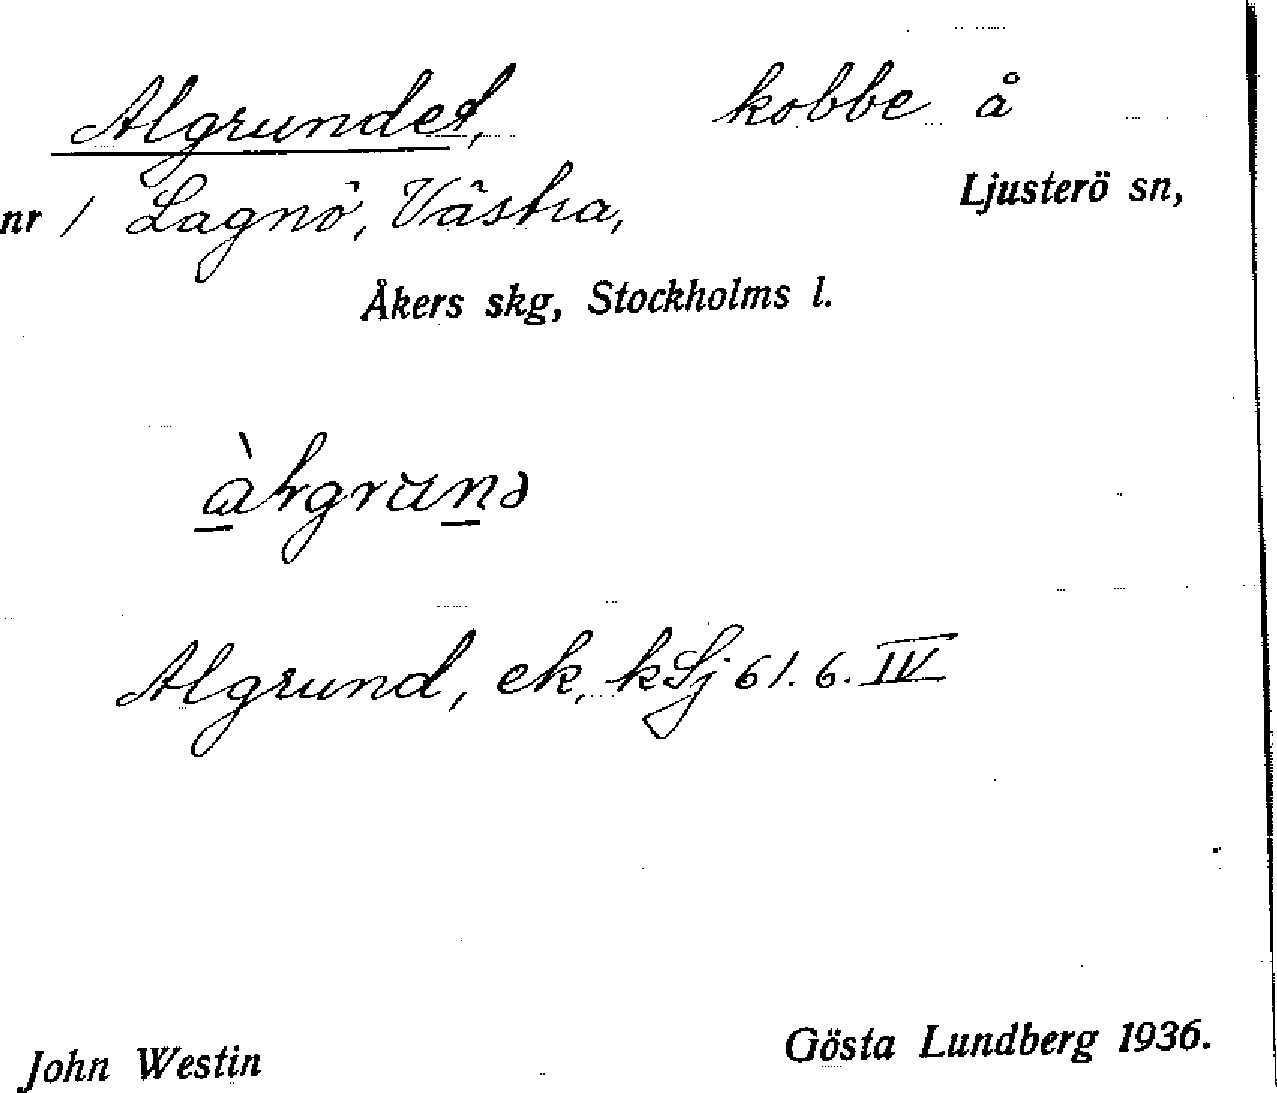 Algrundet, kobbe å
nr 1 Lagnö, Västra, Ljusterö sn,
Åkers skg, Stockholms l.
Algrund, ek, kLj 61. 6. IV
John Westin Gösta Lundberg 1936.